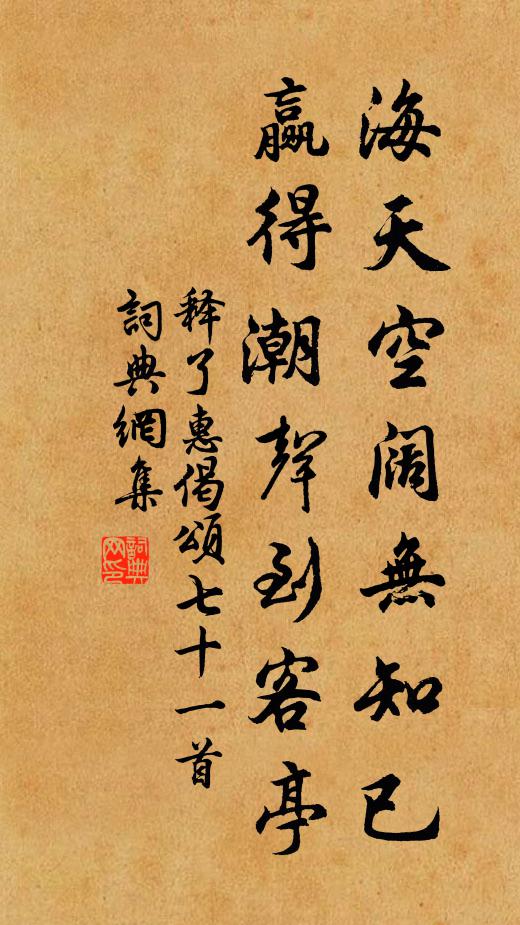 海天空阔無知已
赢得潮聲到客亭
释了惠偈頌七十一首
詞典網集
詞典网印